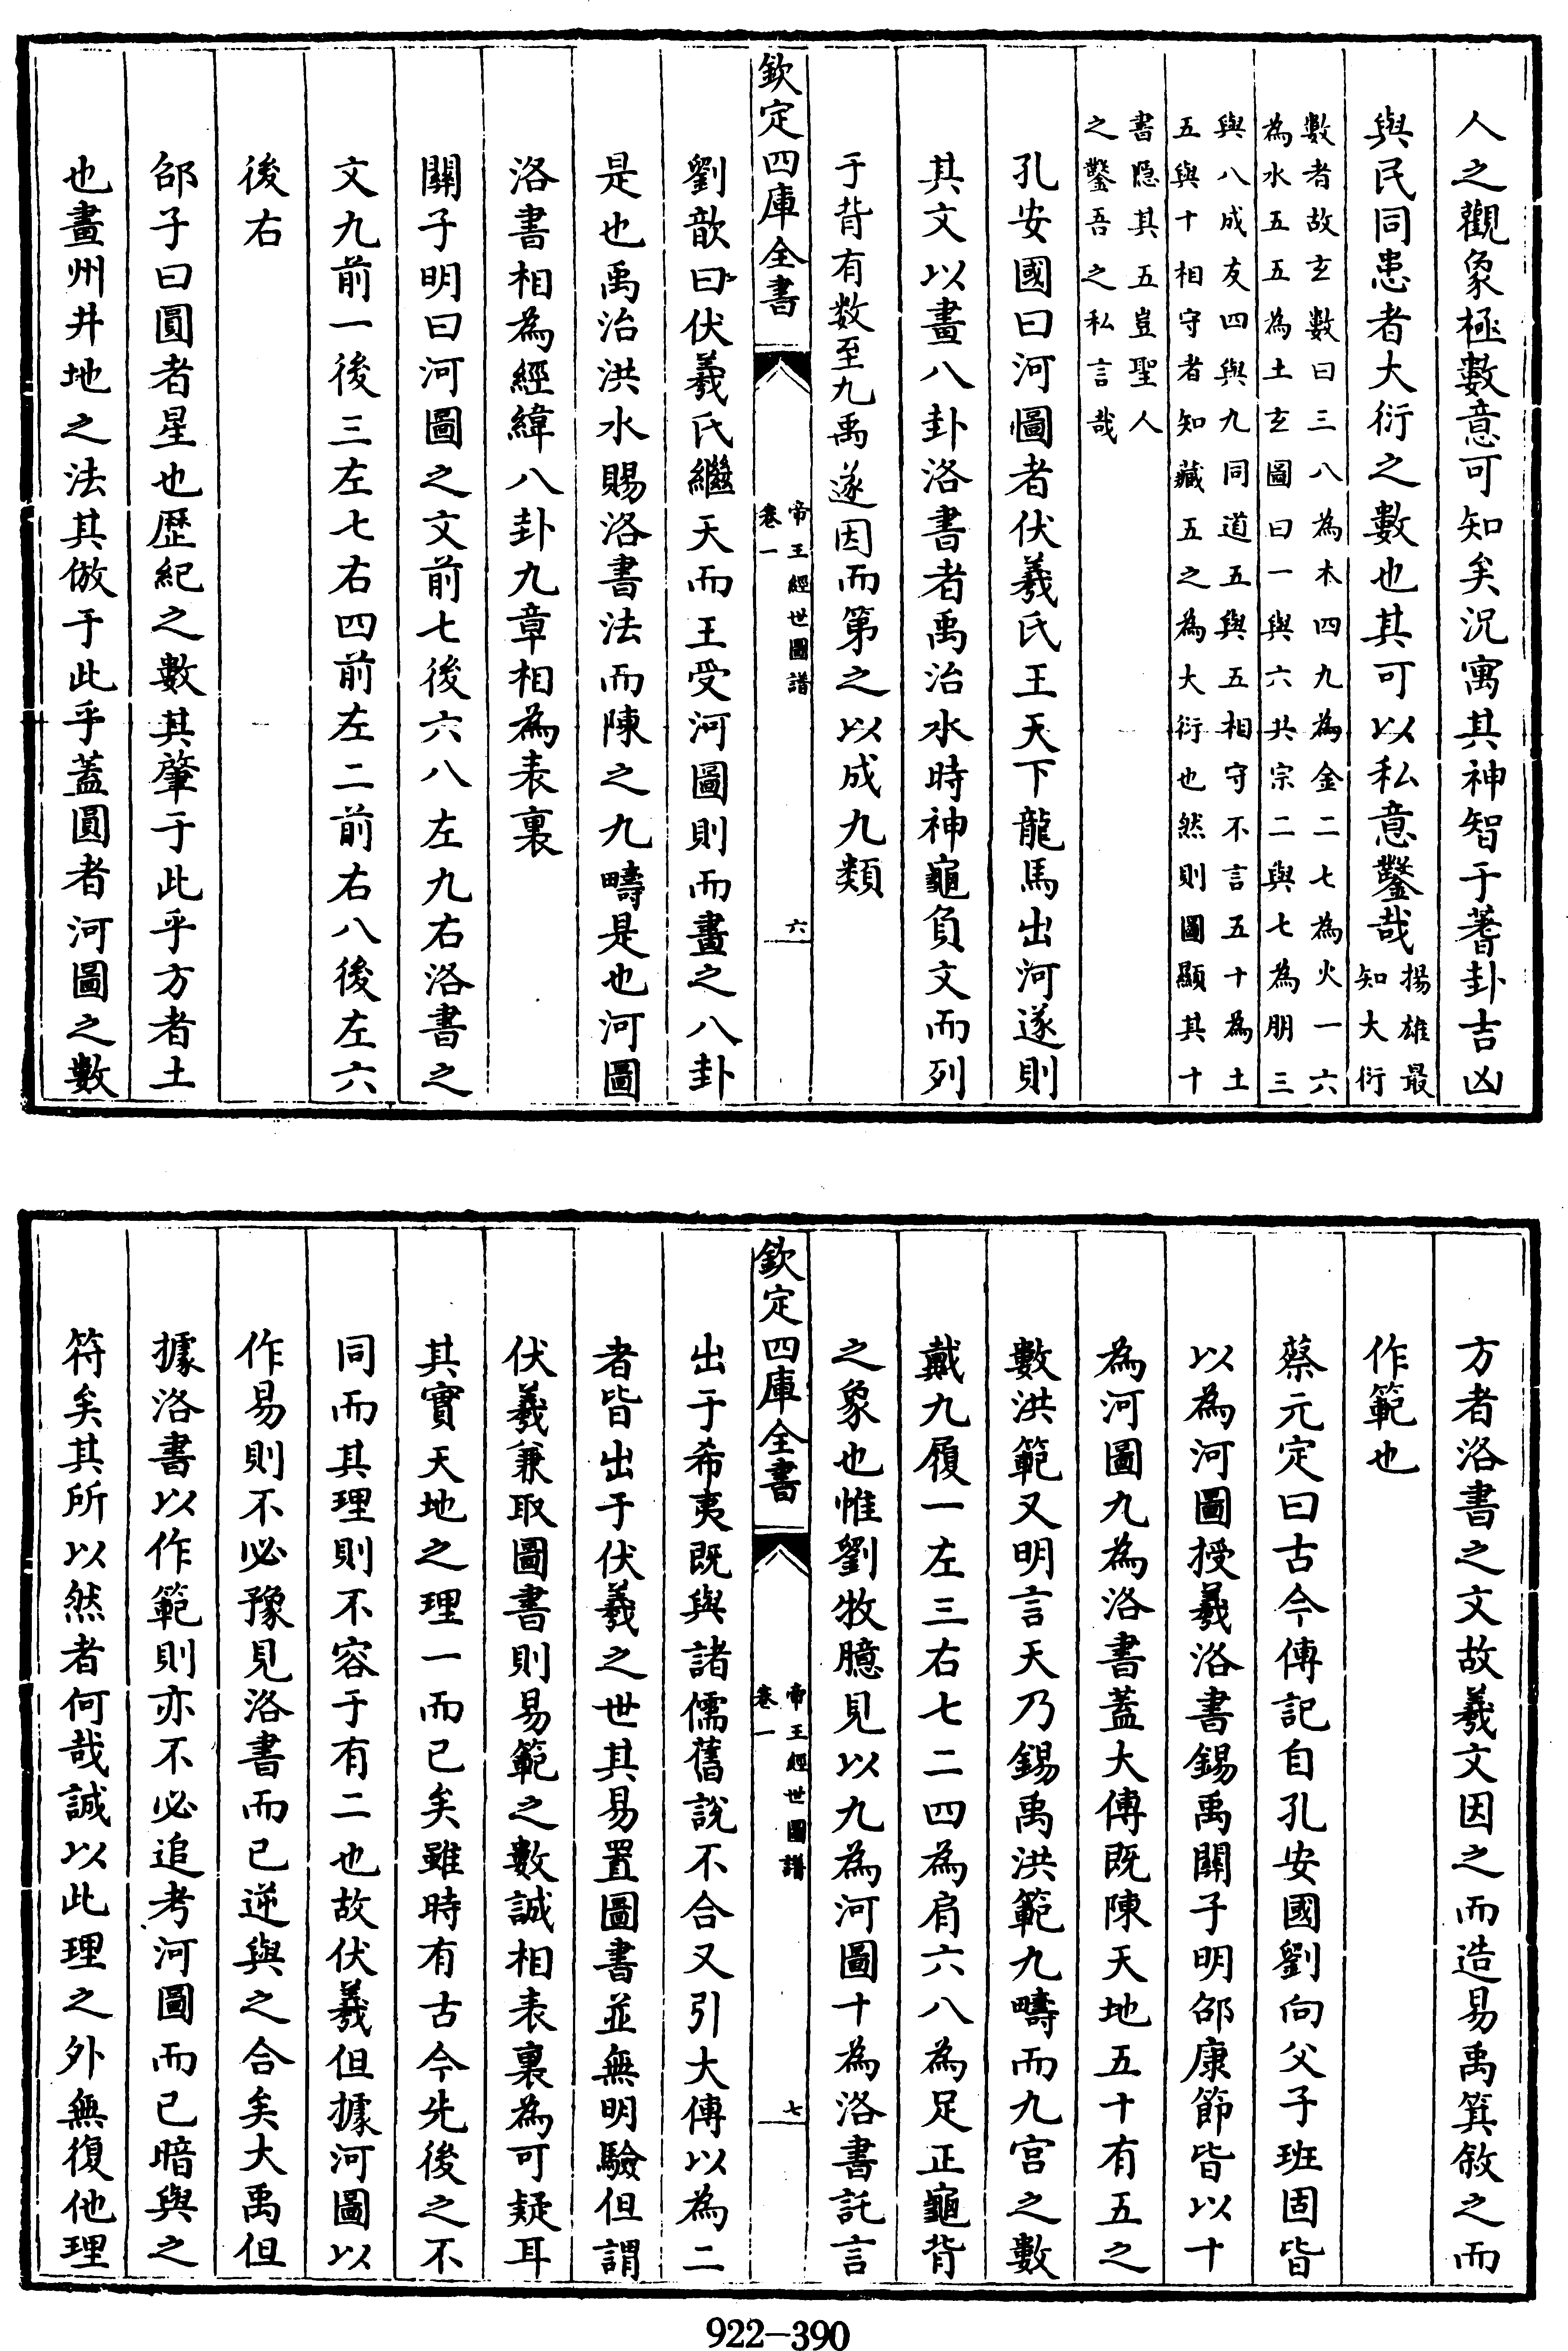 人之觀象極數意可知矣況寓其神智于蓍卦吉凶
與民同患者大衍之數也其可以私意鑿哉揚雄最
知大衍
數者故玄數曰三八為木四九為金二七為火一六
為水五五為土玄圖曰一與六共宗二與七為朋三
與八成友四與九同道五與五相守不言五十為土
五與十相守者知藏五之為大衍也然則圖顯其十
書隱其五豈聖人
之鑿吾之私言哉
孔安國曰河圖者伏羲氏王天下龍馬出河遂則
其文以畫八卦洛書者禹治水時神龜負文而列
于背有数至九禹遂因而第之以成九類
欽定四庫全書
帝王經世圖譜
卷一
六
劉歆曰伏羲氏繼天而王受河圖則而畫之八卦
是也禹治洪水賜洛書法而陳之九疇是也河圖
洛書相為經緯八卦九章相為表裏
關子明曰河圖之文前七後六八左九右洛書之
文九前一後三左七右四前左二前右八後左六
後右
邵子曰圓者星也歷紀之數其肇于此乎方者土
也畫州井地之法其倣于此乎蓋圓者河圖之數
方者洛書之文故羲文因之而造易禹箕敘之而
作範也
蔡元定曰古今傳記自孔安國劉向父子班固皆
以為河圖授羲洛書錫禹關子明邵康節皆以十
為河圖九為洛書蓋大傳既陳天地五十有五之
數洪範又明言天乃錫禹洪範九疇而九宫之數
戴九履一左三右七二四為肩六八為足正龜背
之象也惟劉牧臆見以九為河圖十為洛書託言
欽定四庫全書
帝王經世圖譜
卷一
七
出于希夷既與諸儒舊說不合又引大傳以為二
者皆出于伏羲之世其易置圖書並無明驗但謂
伏羲兼取圖書則易範之數誠相表裏為可疑耳
其實天地之理一而已矣雖時有古今先後之不
同而其理則不容于有二也故伏羲但據河圖以
作易則不必豫見洛書而已逆與之合矣大禹但
據洛書以作範則亦不必追考河圖而已暗與之
符矣其所以然者何哉誠以此理之外無復他理
922-390